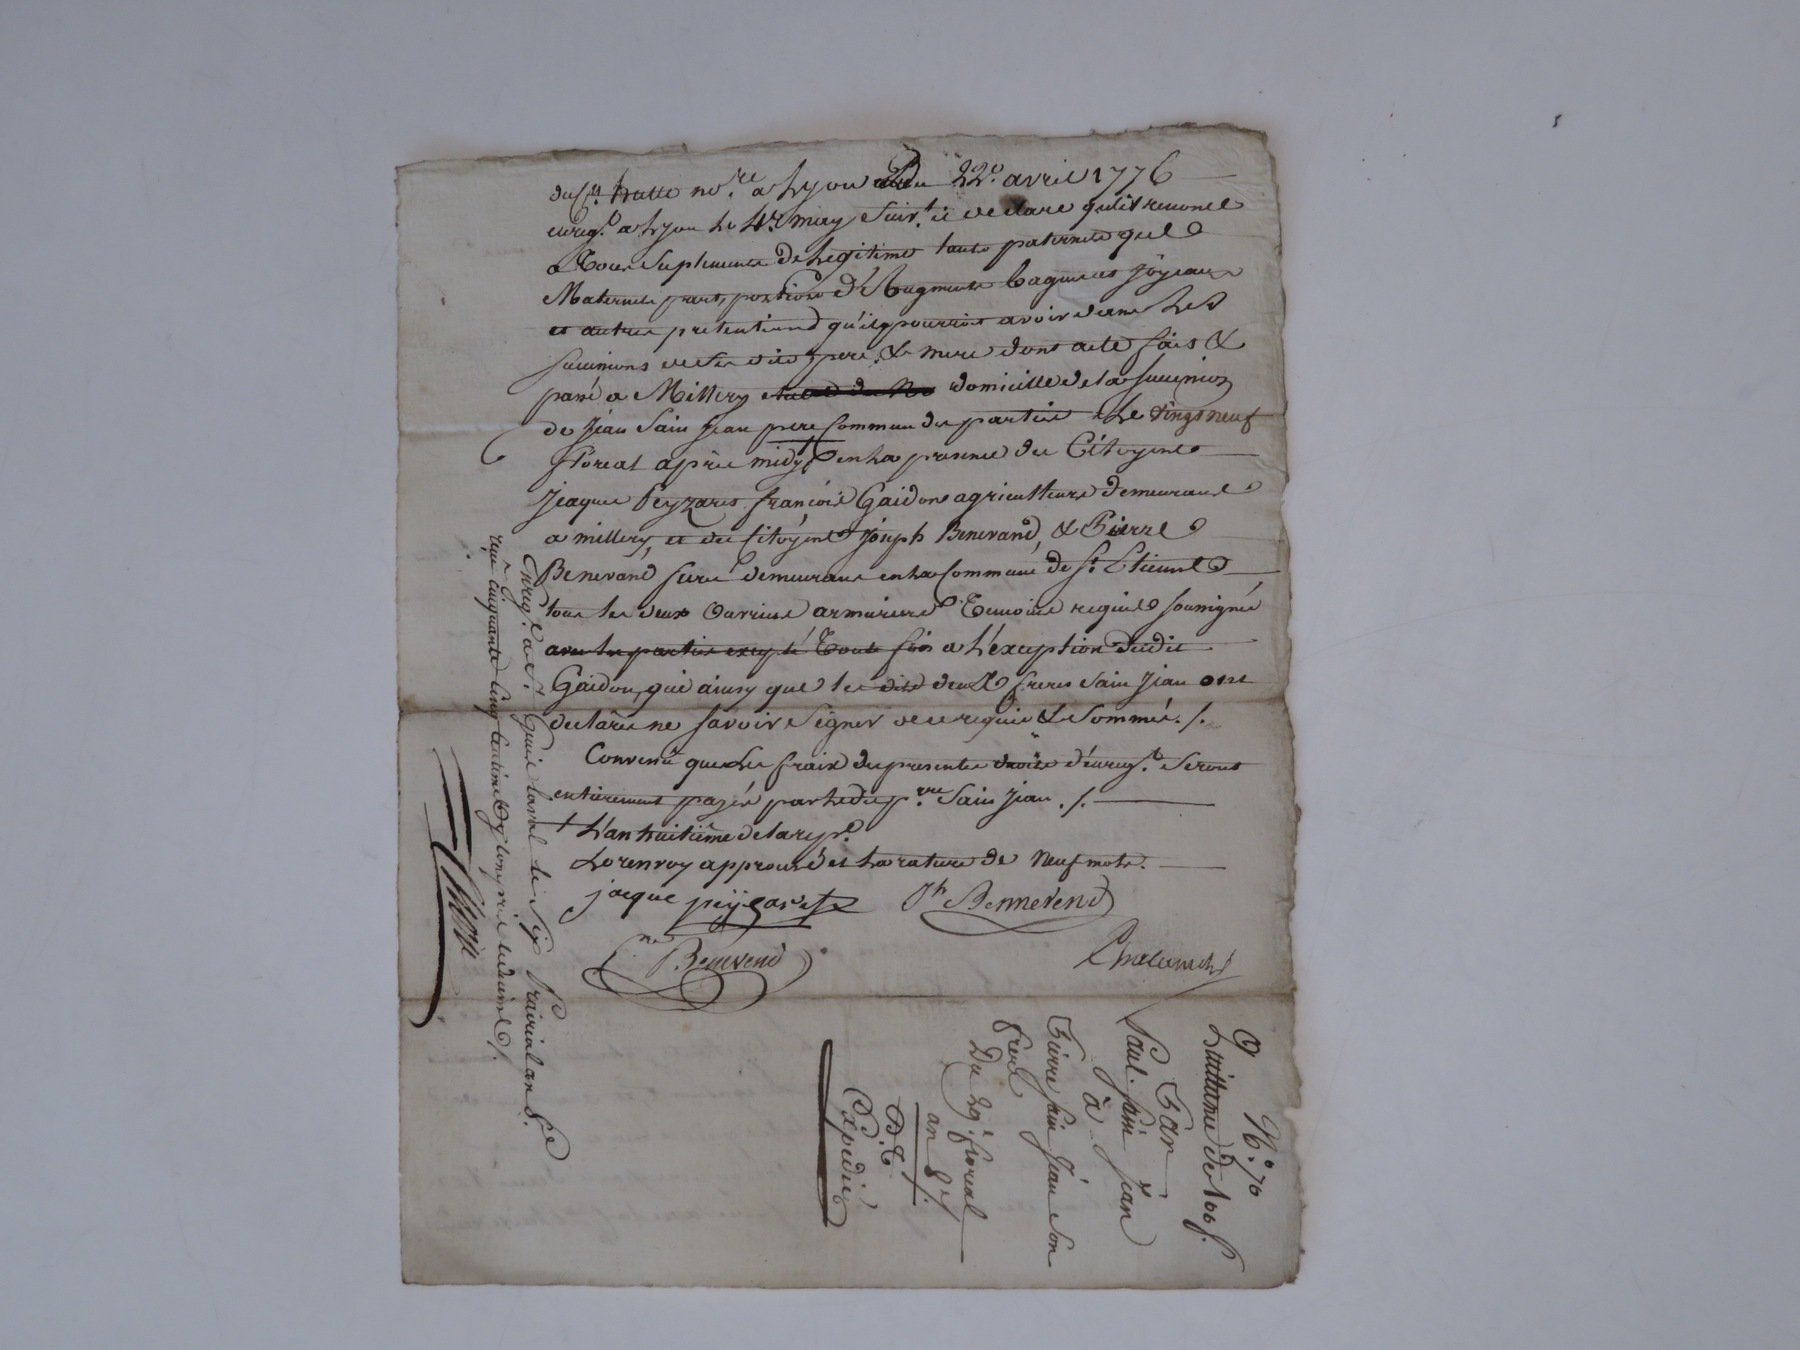 dud. hatte no.re a Lyon du 22.e avril 1776
enreg.é a Lyon le 4.e may suiv.t il declare qu'il renonce
a tous suplements de legitime tant paternelle que
Maternelle part, portion d'augments bagues et joyeaux
et autres pretentions qu'il pourroit avoir dans les
successions de ses dits pere & mere dont acte fait &
passé a Millery domicille de la succession
de jean sain jean pere commun des parties le vingt neuf
floreal après midy en la presence des Citoyens
jeaque Peyzaret françois Gaidon agriculteurs demeurants
a millery, et des Citoyens joseph Benevand, & Pierre
Benevand freres demeurants en la Commune de St. Etienne
tous les deux ouvriers armuriers temoins requis soussignés
avec les parties excepté toute fois a l'exception dudit
Gaidon, qui ainsy que les dits deux freres sain jean ont
declarés ne savoir signer de ce requis & sommés ./.
Convenu que les fraix des presentes droits d'enreg.t seront
entierement payés par ledit p.rre sain jean ./.
+ L'an huitième de la rep.e
Le renvoy approuvé et la rature de neuf mots.
jacque peyzaret Jh Bennevend
p.re Benevend
Chalandon
Enreg.é a St. Genis laval le six Prairial an 8.e
reçu cinquante cinq centimes y compris le decime ./.
N.o 70
Quittance de 100 f.
Par
Paul sain jean
à
Pierre sain jean son
frere
Du 29.e floreal
an 8 /.
Expédié